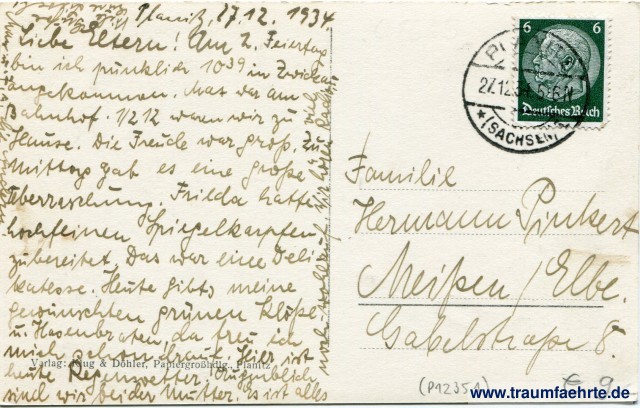 Planitz, 27.12.1934
Liebe Eltern! Am 2. Feiertag
bin ich pünktlich 10³⁹ in Zwickau
angekommen. Max war am
Bahnhof. 1/2 12 waren wir zu
Hause. Die Freude war groß. Zu
Mittag gab es eine große
Überraschung. Frilda hatte
hochfeinen Spiegelkarpfen
zubereitet. Das war eine Deli-
katesse. Heute gibts meine
gewünschten grünen Klöße
u. Hasenbraten, da freu ich
mich schon drauf. Hier ist
heute Regenwetter. Augenblickl.
sind wir beider Mutter. Es ist alles
Verlag: Klug & Döhler, Papiergroßhdlg., Planitz
6 6
Deutsches Reich
27.12.34
(SACHSEN)
Familie
Hermann Pinkert
Meißen/Elbe.
Gabelstraße 8.
(P12351)
€ 9
www.traumfaehrte.de